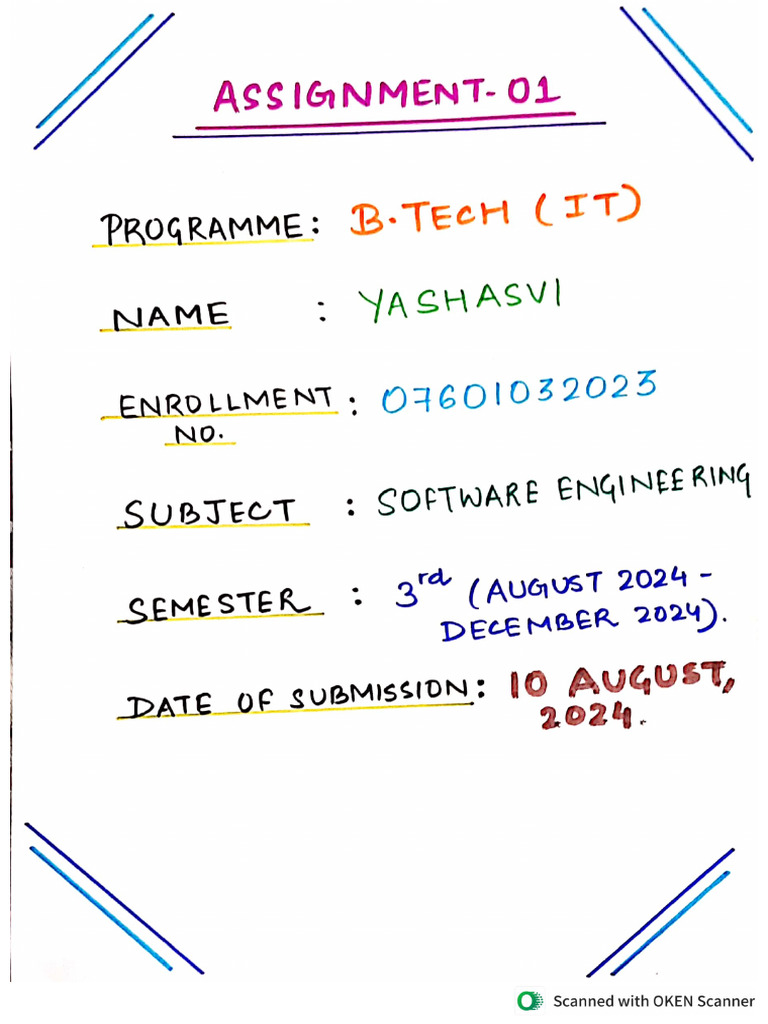 ASSIGNMENT-01
PROGRAMME: B.TECH (IT)
NAME : YASHASVI
ENROLLMENT NO. : 07601032023
SUBJECT : SOFTWARE ENGINEERING
SEMESTER : 3rd (AUGUST 2024 -
DECEMBER 2024).
DATE OF SUBMISSION: 10 AUGUST,
2024.
Scanned with OKEN Scanner